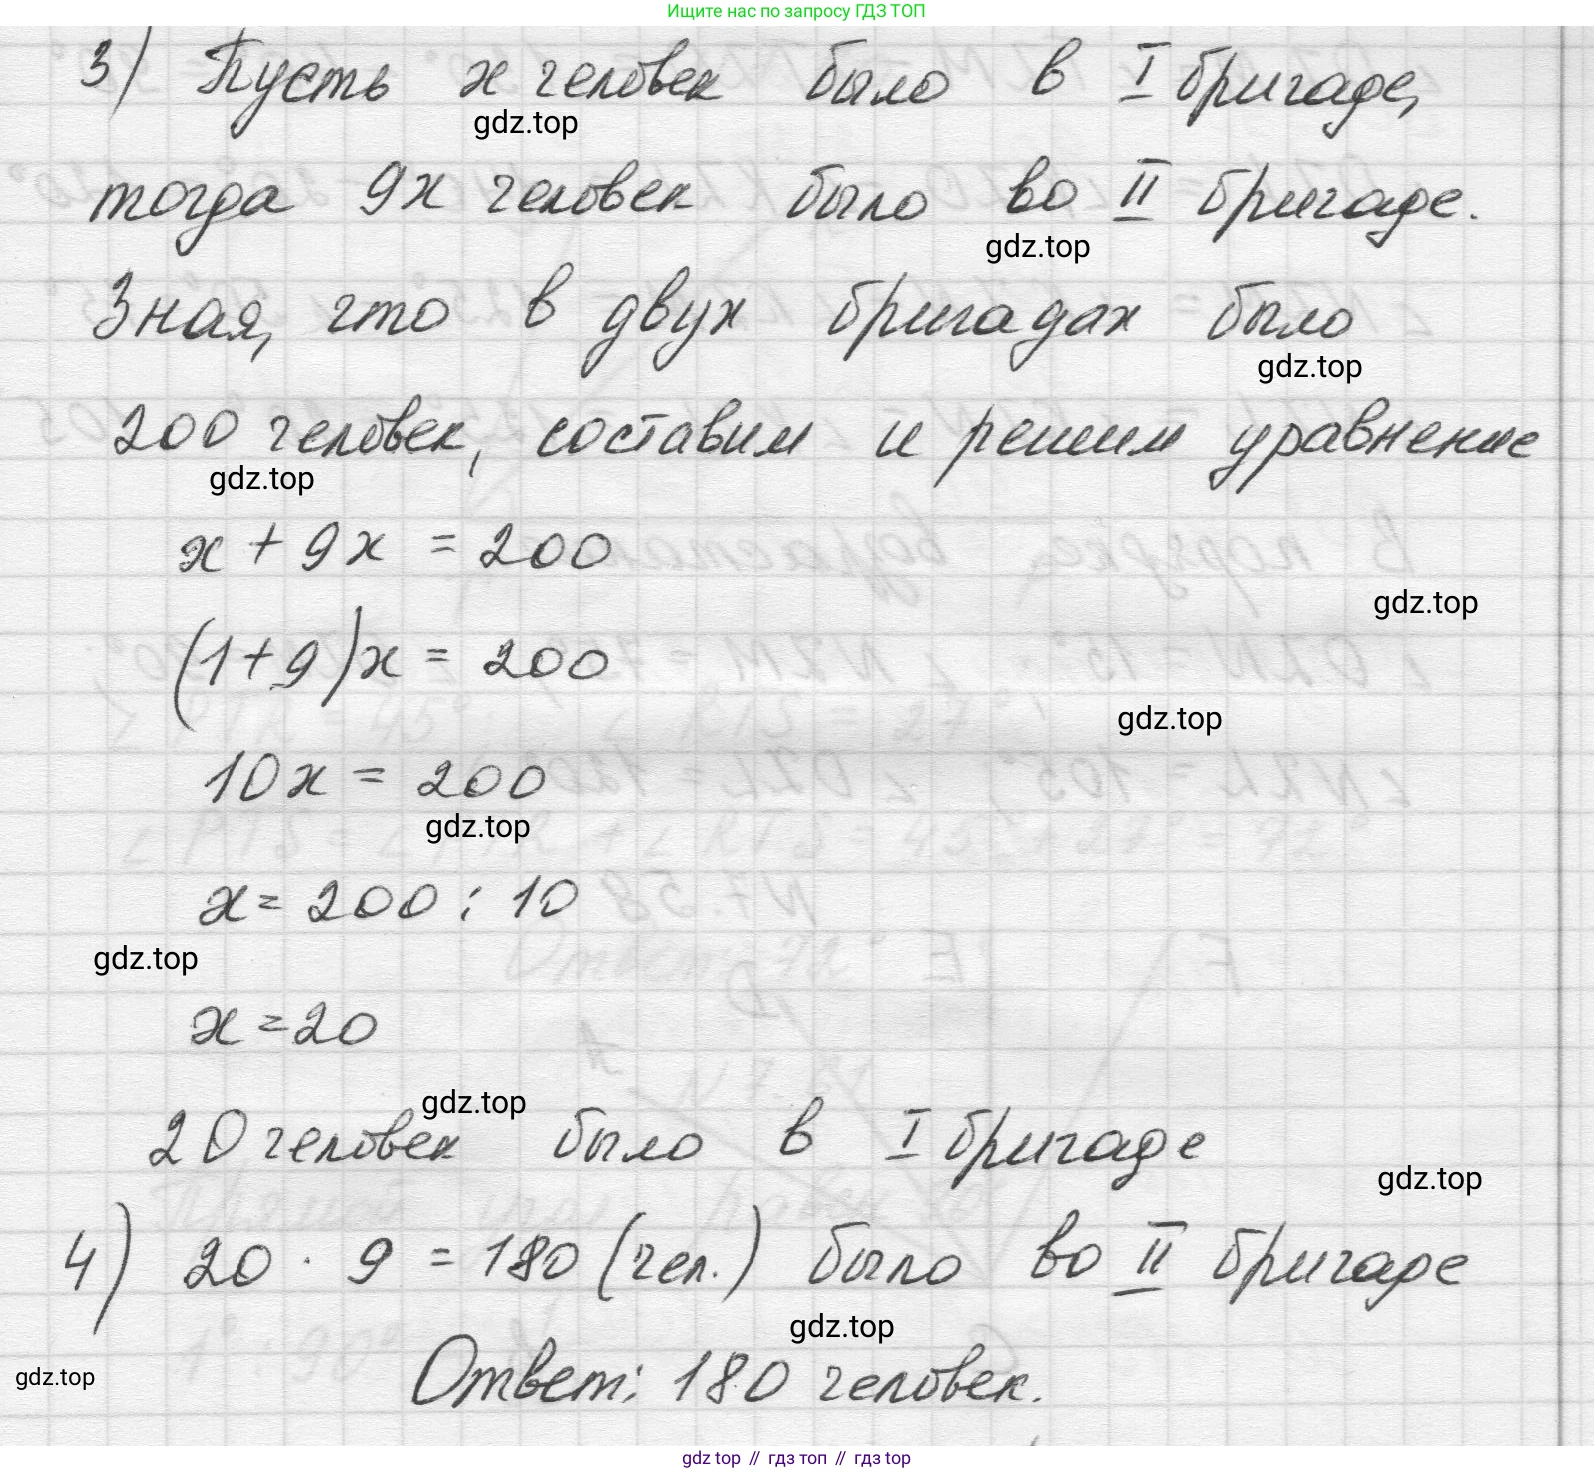 Ищите нас по запросу ГДЗ ТОП
3) Пусть x человек было в I бригаде,
gdz.top
тогда 9x человек было во II бригаде.
gdz.top
Зная, что в двух бригадах было
gdz.top
200 человек, составим и решим уравнение
gdz.top
x + 9x = 200
gdz.top
(1+9)x = 200
gdz.top
10x = 200
gdz.top
x = 200 : 10
gdz.top
x = 20
gdz.top
20 человек было в I бригаде
gdz.top
4) 20 · 9 = 180 (чел.) было во II бригаде
gdz.top
gdz.top
Ответ: 180 человек.
gdz top // гдз топ // гдз top